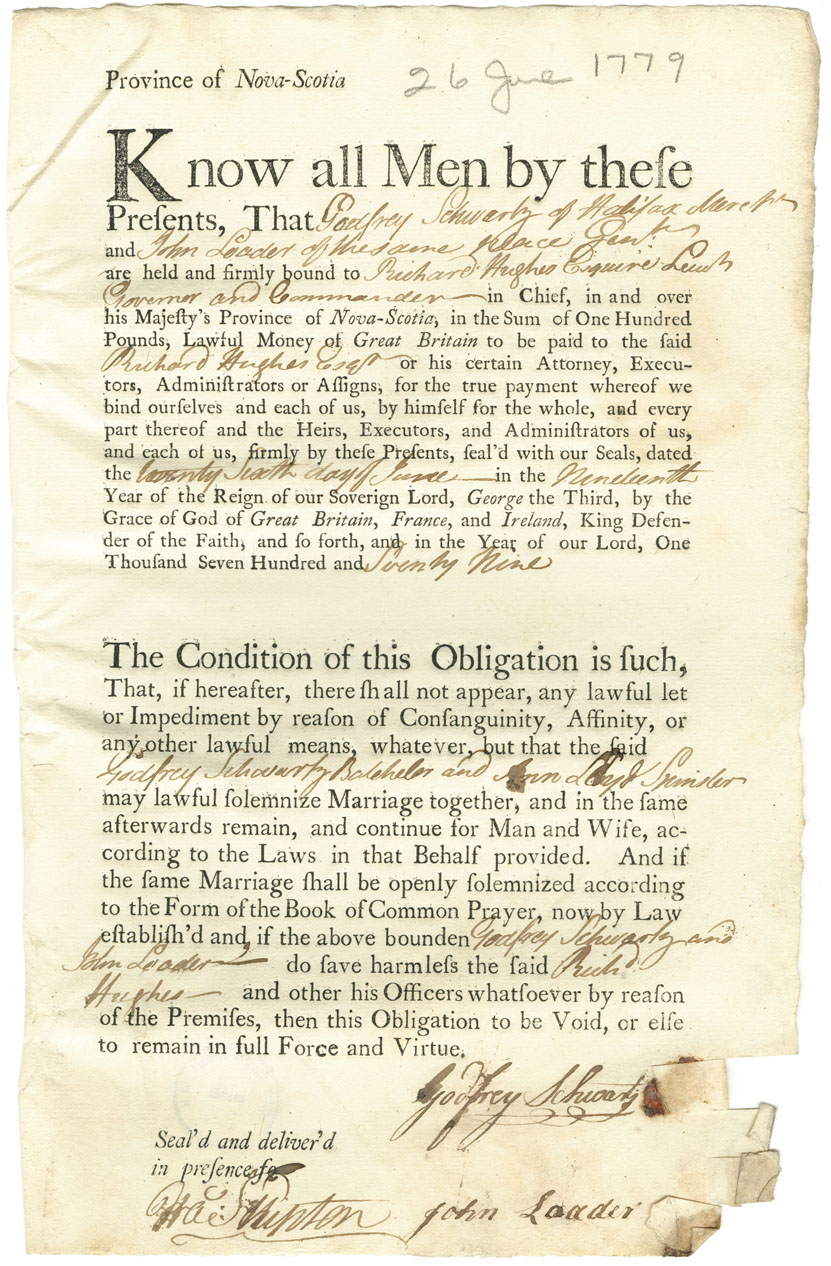 Province of Nova-Scotia
26 June 1779
Know all Men by theſe
Preſents, That Godfrey Schwartz of Halifax March.t
and John Loader of the same place Gent.n
are held and firmly bound to Richard Hughes Esquire Lieut.
Governor and Commander in Chief, in and over
his Majeſty's Province of Nova-Scotia, in the Sum of One Hundred
Pounds, Lawful Money of Great Britain to be paid to the said
Richard Hughes Esq.r or his certain Attorney, Execu-
tors, Adminiſtrators or Aſſigns, for the true payment whereof we
bind ourselves and each of us, by himſelf for the whole, and every
part thereof and the Heirs, Executors, and Adminiſtrators of us,
and each of us, firmly by theſe Preſents, ſeal'd with our Seals, dated
the twenty Sixth day of June in the Nineteenth
Year of the Reign of our Soverign Lord, George the Third, by the
Grace of God of Great Britain, France, and Ireland, King Defen-
der of the Faith, and ſo forth, and in the Year of our Lord, One
Thouſand Seven Hundred and Seventy Nine
The Condition of this Obligation is ſuch,
That, if hereafter, there ſhall not appear, any lawful let
or Impediment by reaſon of Conſanguinity, Affinity, or
any other lawful means, whatever, but that the ſaid
Godfrey Schwartz Batcheler and Ann Lloyd Spinster
may lawful ſolemnize Marriage together, and in the ſame
afterwards remain, and continue for Man and Wife, ac-
cording to the Laws in that Behalf provided. And if
the ſame Marriage ſhall be openly ſolemnized according
to the Form of the Book of Common Prayer, now by Law
eſtabliſh'd and, if the above bounden Godfrey Schwartz and
John Loader do ſave harmleſs the ſaid Rich.d
Hughes and other his Officers whatſoever by reaſon
of the Premiſes, then this Obligation to be Void, or elſe
to remain in full Force and Virtue.
Godfrey Schwartz
Seal'd and deliver'd
in preſence of
Shipton
John Loader